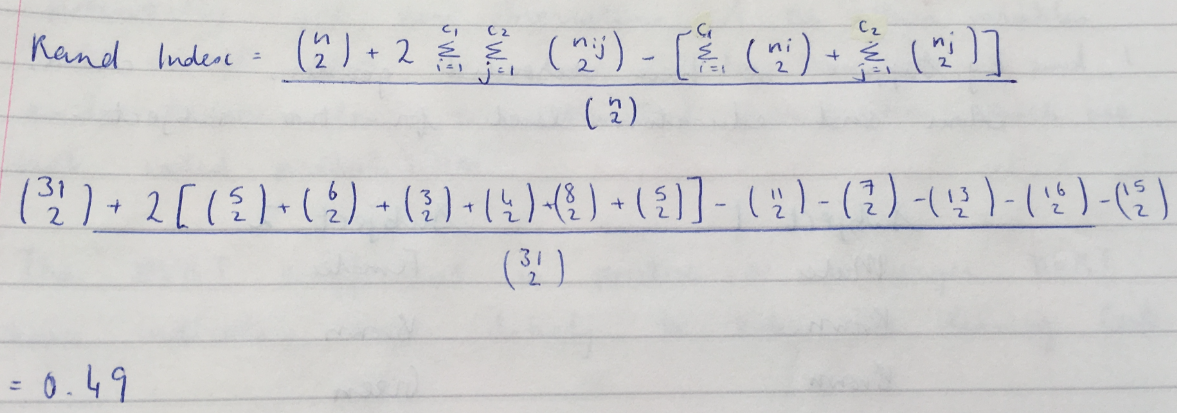 Rand Index = \frac{\binom{n}{2} + 2 \sum_{i=1}^{c_1} \sum_{j=1}^{c_2} \binom{n_{ij}}{2} - \left[ \sum_{i=1}^{c_1} \binom{n_i}{2} + \sum_{j=1}^{c_2} \binom{n_j}{2} \right]}{\binom{n}{2}}
\frac{\binom{31}{2} + 2 \left[ \binom{5}{2} + \binom{6}{2} + \binom{3}{2} + \binom{4}{2} + \binom{8}{2} + \binom{5}{2} \right] - \binom{11}{2} - \binom{7}{2} - \binom{13}{2} - \binom{16}{2} - \binom{15}{2}}{\binom{31}{2}}
= 0.49